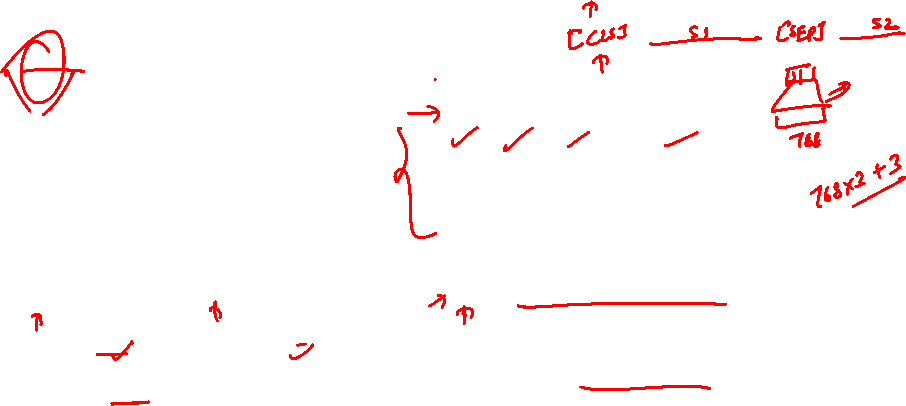 [CLS] S1 [SEP] S2
768
768x2+3